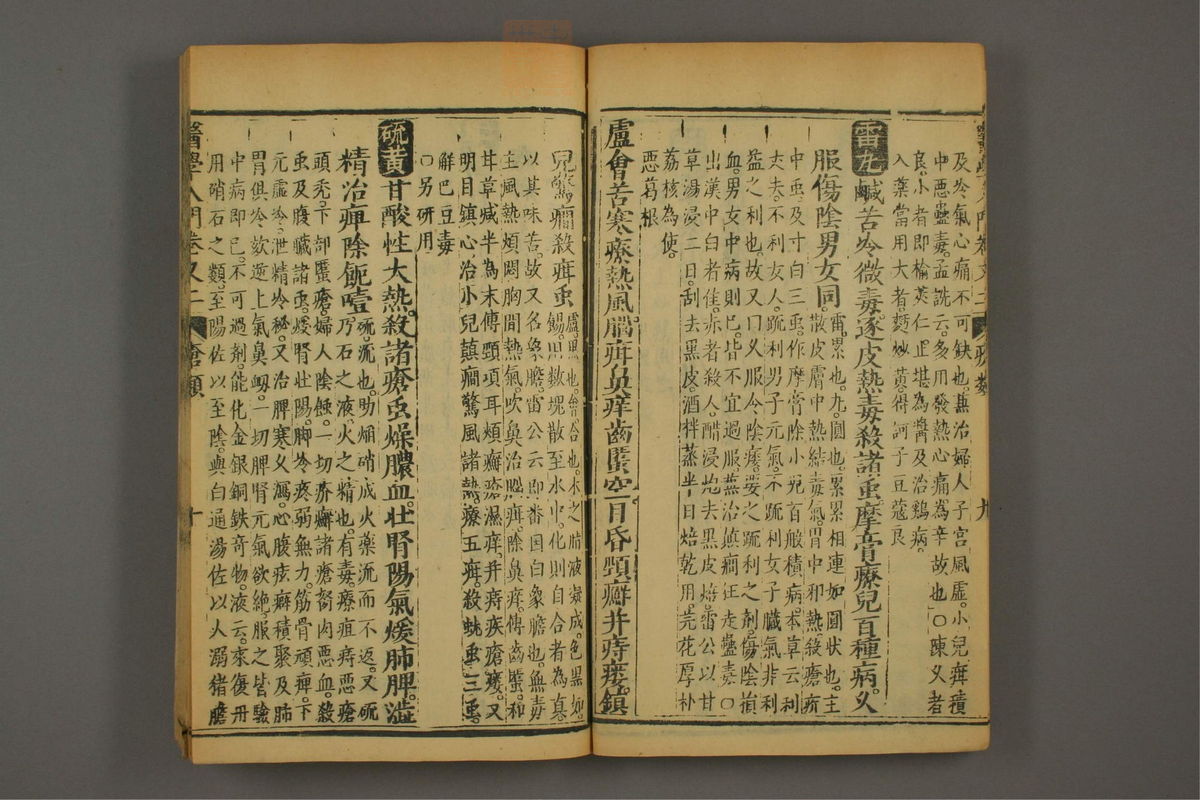 醫學入門卷之二 瘡類 九
及冷氣心痛不可缺也兼治婦人子宮風虛小兒疳積
中惡蠱毒孟詵云多用發熱心痛為辛故也○陳久者
良小者即榆莢仁止堪為醬及治雞病
入藥當用大者麩炒黃得訶子豆蔻良
雷丸鹹苦冷微毒逐皮熱毒殺諸蟲摩膏療兒百種病久
服傷陰男女同
雷累也丸圓也累累相連如圓狀也主
散皮膚中熱結毒氣胃中邪熱殺瘡疥
中虫及寸白三虫作摩膏除小兒百般積病本草云利
丈夫不利女人疏利男子元氣不疏利女子臟氣非利
益之利也故又曰久服令陰痿要之疏利之劑傷陰損
血男女中病則已皆不宜過服兼治顛癇狂走蠱毒○
出漢中白者佳赤者殺人醋浸炮去黑皮焙雷公以甘
草湯浸二日刮去黑皮酒拌蒸半日焙乾用芫花厚朴
荔核為使
惡葛根
盧會苦寒療熱風腦疳鼻痒齒䘌空目昏頸癬并痔瘻鎮
兒驚癇殺疳虫
盧黑也會合也木之脂液凝成色黑如
錫用數塊散至水中化則自合者為真
以其味苦故又名象膽雷公云即番国白象膽也無毒
主風熱煩悶胸間熱氣吹鼻治腦疳除鼻痒傅齒䘌和
甘草減半為末傅頸項耳頰癬瘡濕痒并痔疾瘡瘻又
明目鎮心治小兒顛癇驚風諸熱療五疳殺蚘虫三虫
解巴豆毒
○另研用
硫黃甘酸性大熱殺諸瘡虫燥膿血壯腎陽氣煖肺脾澁
精治痺除䬳噎
硫流也助焰硝成火藥流而不返又硫
乃石之液火之精也有毒療疽痔惡瘡
頭禿下部䘌瘡婦人陰蝕一切疥癬諸瘡胬肉惡血殺
虫及腹臟諸虫煖腎壯陽脚冷疼弱無力筋骨頑痺下
元虛冷泄精冷秘又治脾寒久瀉心腹痃癖積聚及肺
胃俱冷欬逆上氣鼻衂一切脾腎元氣欲絕服之皆驗
中病即已不可過劑能化金銀銅鉄奇物液云來復丹
用硝石之類至陽佐以至陰與白通湯佐以人溺猪膽
醫學入門卷又二 瘡類 十